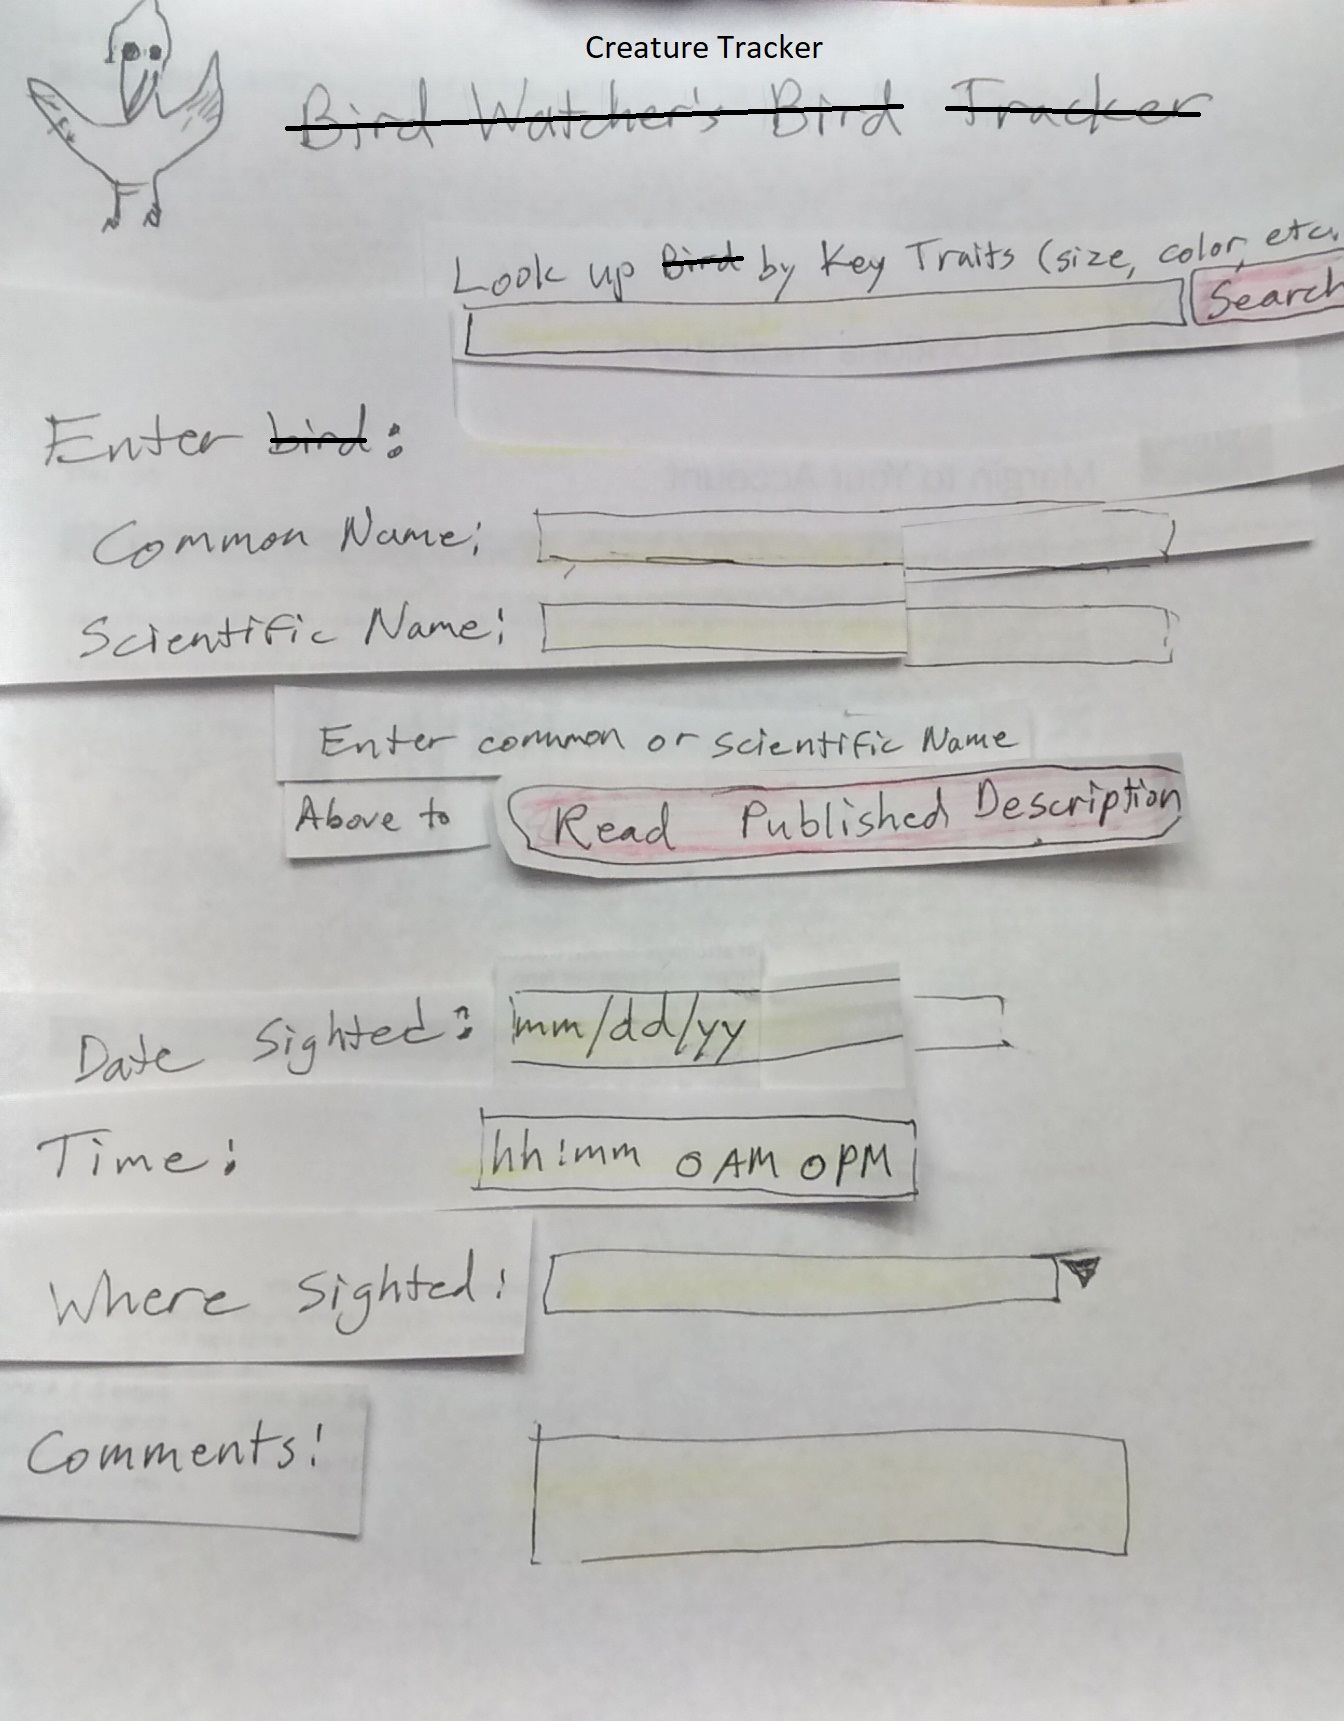 Creature Tracker
Bird Watcher's Bird Tracker
Look up Bird by Key Traits (size, color, etc.
Search
Enter bird:
Common Name:
Scientific Name:
Enter common or scientific Name
Above to Read Published Description
Date Sighted: mm/dd/yy
Time: hh:mm O AM O PM
Where Sighted:
Comments: